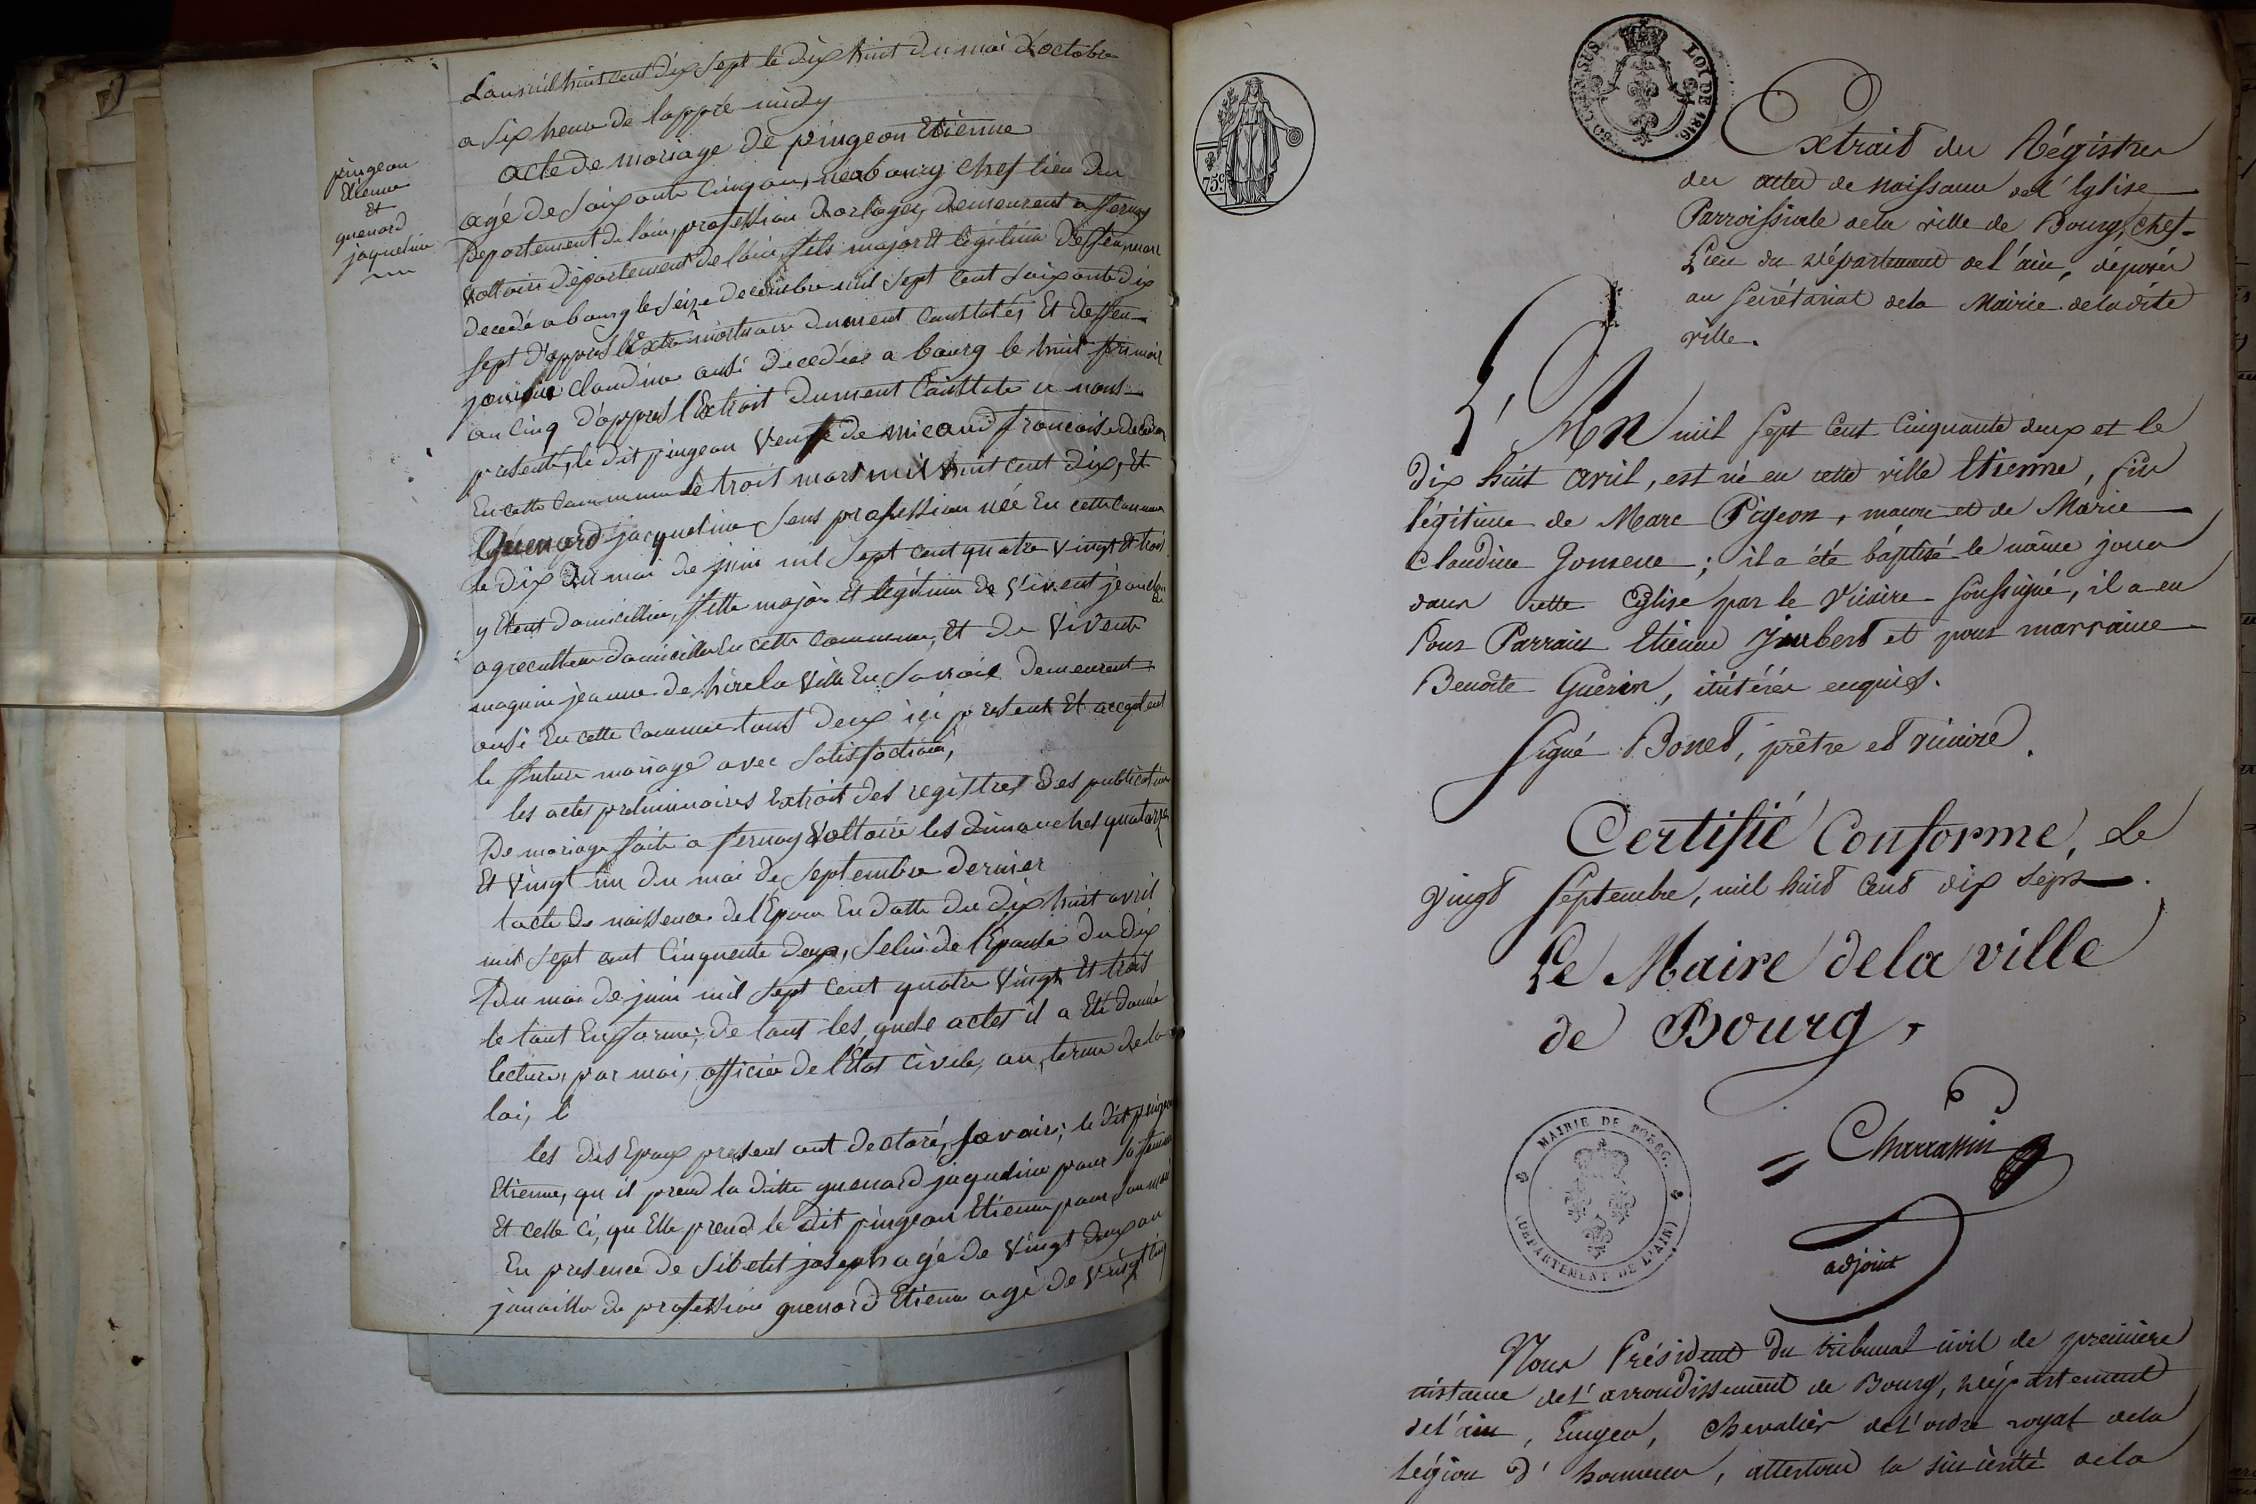 Lan mil huit cent dix sept le dix huit du moi d'octobre
a six heure de lappré midy
acte de mariage de pingeon Etienne
agé de soixante cinq an, né a bourg chef lieu du
Departement de lain, profession dorloger, demeurent a fernay
voltaire département de lain, fils major et légitime de feu, marc
decedé a bourg le seize decembre mil sept cent soixante dix
sept d'appres l'Extr mortuaire dument constatés Et de feu
claudine ausi decedée a bourg le huit frimair
an cinq d'appres l'Extroit dument constaté ce nous
presente, le dit pingeon veuf de micaud francoise decedée
En cette commune le trois mars mil huit cent dix, Et
Guenard jacqueline sens profession néé En cette commune
le dix du moi de juin mil sept cent quatre vingt et trois
y Etent domicilliée, fille major Et légitime de vivent jean
agreculteur domicillié En cette commune, Et de vivente
magnin jeanne de la ville En savoie demeurent
ausi En cette commune tous deux ici present Et acceptent
le future mariage avec satisfaction,
les actes preliminaires Extroit des registres des publication
De mariage faite a fernay voltaire les dimanches quatorze
Et vingt un du moi de septembre dernier
lacte de naissence de l'Epoux En datte du dix huit avril
mil sept cent cinquente deux, selui de l'Epouse du dix
du moi de juin mil sept cent quatre vingt Et trois
le tout En forme, de tout les quele actes il a Eté donné
lecture, par moi, officier de l'Etat civile, au terme de la
loi, l
les dis Epoux presens ont declaré, savoir; le dit pingeon
Etienne, qu il prend la ditte guenard jaqueline pour sa femme
Et celle ci, qu Elle prend le dit pingeon Etienne pour son mari
En presence de Sibelit joseph agé de vingt deux an
de profession guenard Etienne agé de vingt cinq
pingeon
Etienne
et
guenard
jaqueline
75c
LOI DE 1816.
Extrait du Régistre
des actes de naissance de l'Eglise
Parroissiale de la ville de Bourg, Chef-
Lieu du Département de l'ain, déposés
au Secrétariat de la Mairie de la dite
ville.
L'An mil sept Cent Cinquante deux et le
dix huit avril, est né en cette ville Etienne, fils
légitime de Marc Pigeon, macon et de Marie
Claudine ; il a été baptisé le même jour
dans cette Eglise par le Vicaire soussigné, il a eu
Pour Parrain Etienne Jmbert et pour marraine
Benoîte Guérin, illitérés enquis.
Signé Bonet, prêtre et vicaire.
Certifié Conforme, Le
vingt Septembre, mil huit Cent dix Sept.
Le Maire de la ville
de Bourg,
Charrassin
adjoint
MAIRIE DE BOURG.
(DEPARTEMENT DE L'AIN)
Nous Président du tribunal civil de première
instance de l'arrondissement de Bourg, Département
de l'ain, Chevalier de l'ordre royal de la
Légion d'honneur, attestons la sincérité de la